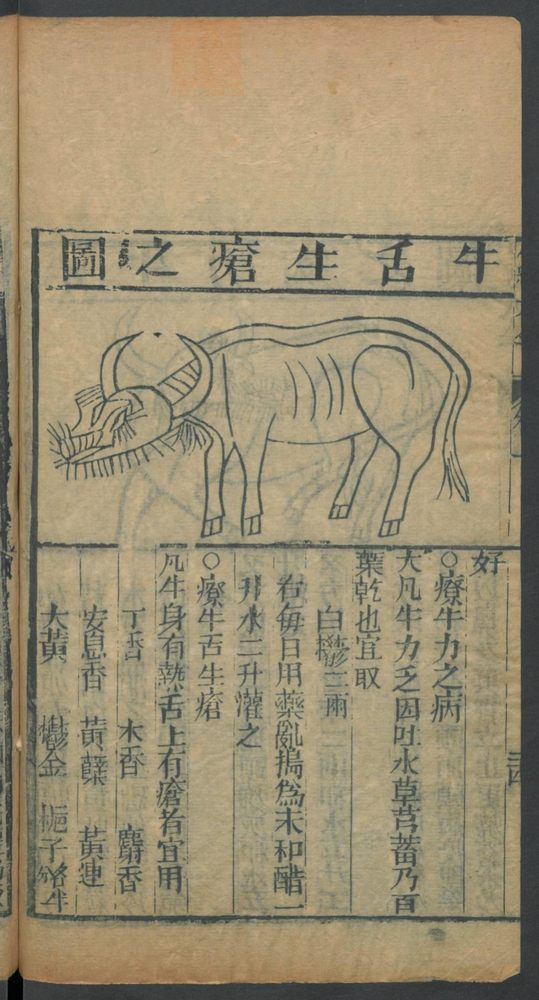 牛舌生瘡之圖
好
○療牛力之病
大凡牛力乏因吐水草芎蓄乃百
葉乾也宜取
白礬二兩
右每日用藥亂搗為末和醋一
升水二升灌之
○療牛舌生瘡
凡牛身有熱舌上有瘡者宜用
丁香 木香 麝香
安息香 黃蘗 黃連
大黃 鬱金 梔子